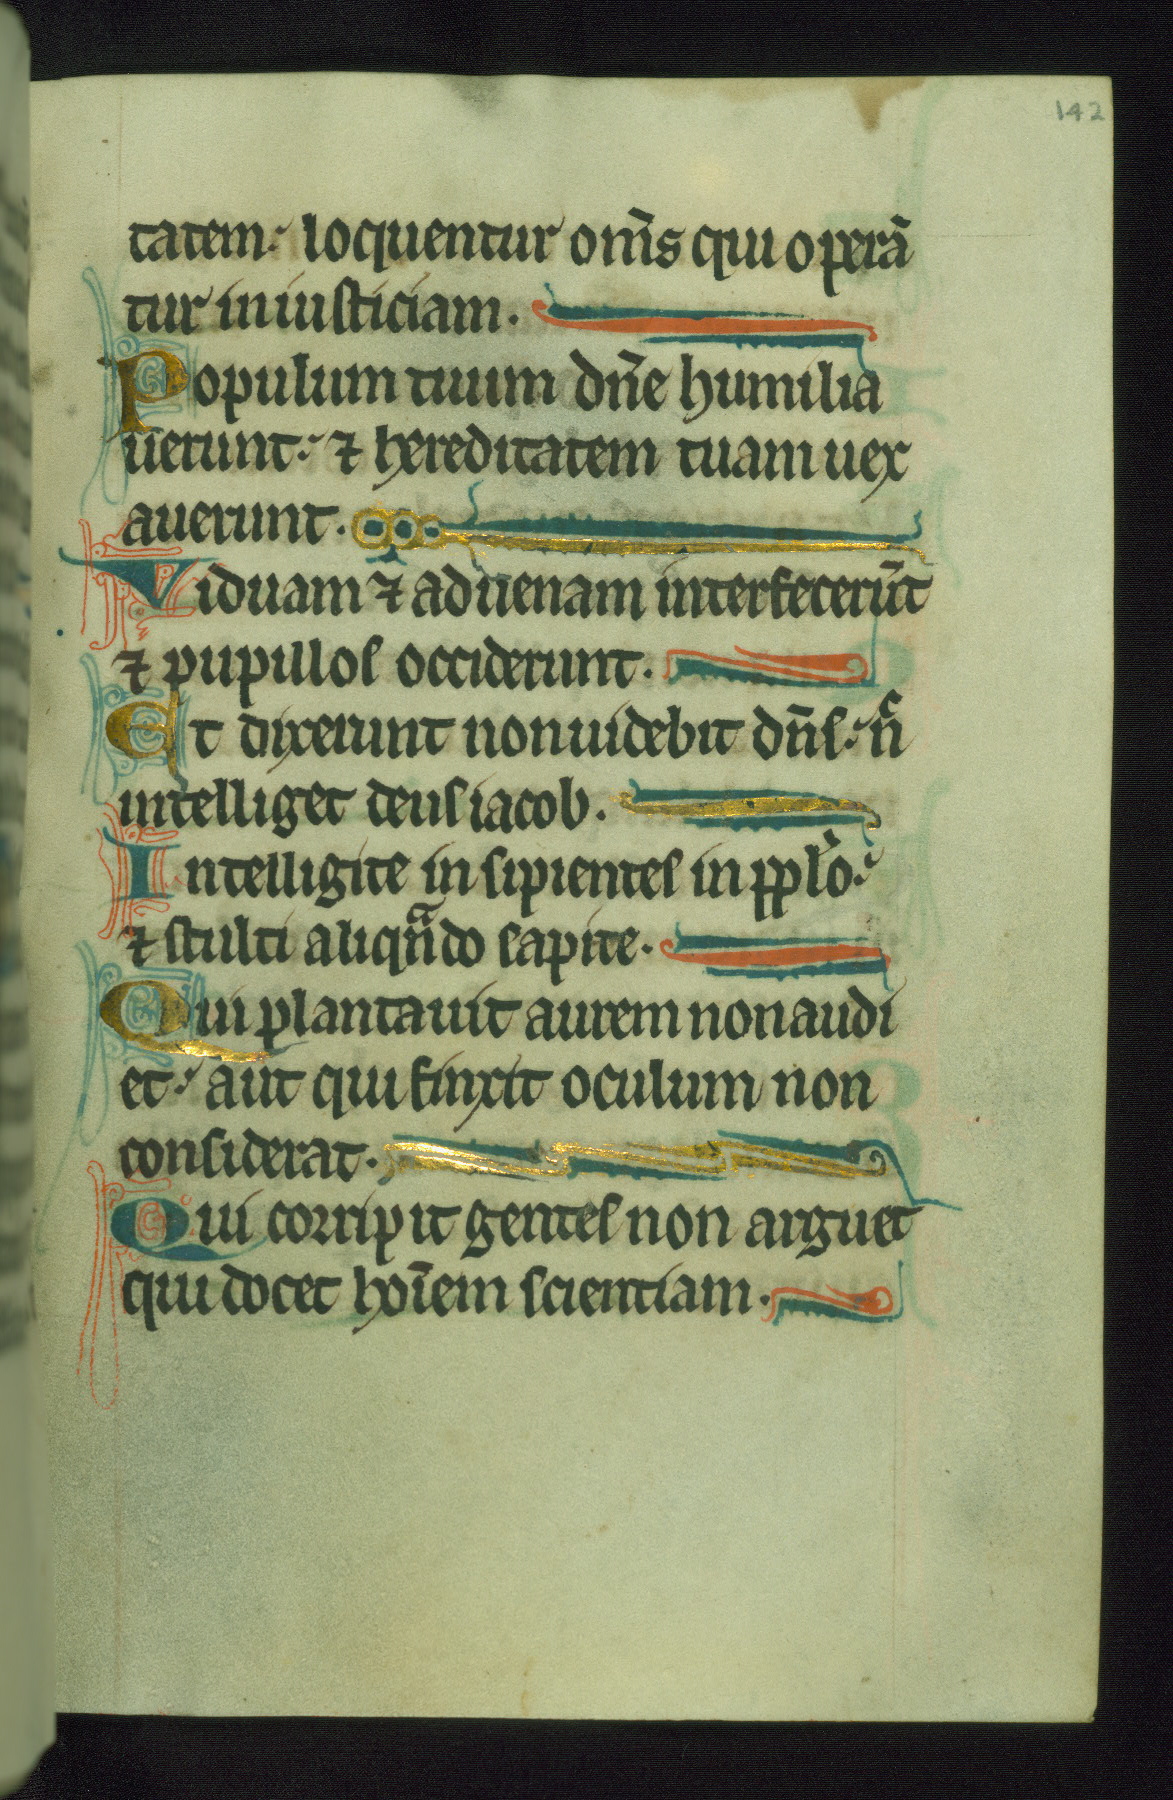 142
tatem: loquentur om̄s qui operā
tur iniusticiam.
Populum tuum dn̄e humilia
uerunt: ⁊ hereditatem tuam uex
auerunt.
Viduam ⁊ aduenam interfecerūt
⁊ pupillos occiderunt.
Et dixerunt non uidebit dn̄s: nͨ
intelliget deus iacob.
Intelligite insipientes in pplo:
⁊ stulti aliqᷓndo sapite.
Qui plantauit aurem non audi
et: aut qui finxit oculum non
considerat.
Qui corripit gentes non arguet
qui docet hoīem scientiam.